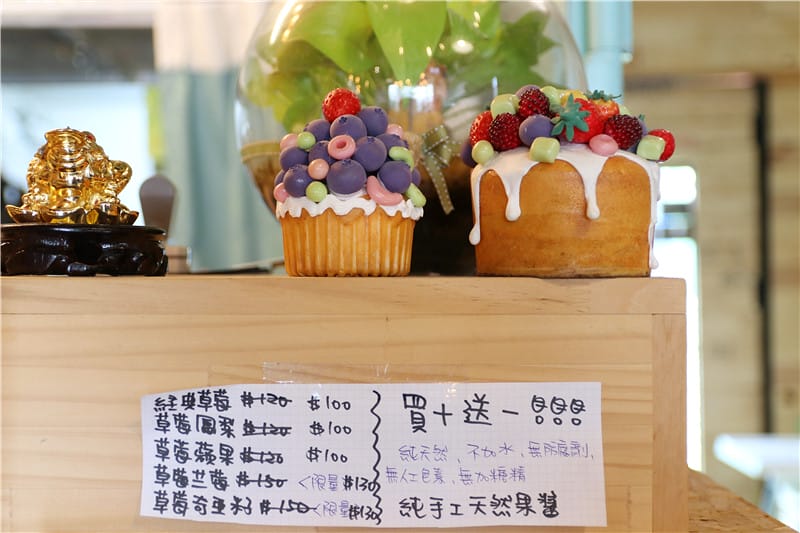 經典草莓 $120 $100
草莓鳳梨 $120 $100
草莓蘋果 $120 $100
草莓藍莓 $150 <限量 $130
草莓奇亞籽 $150 <限量 $130
買十送一!!!
純天然、不加水、無防腐劑、
無人工色素、無加糖精
純手工天然果醬